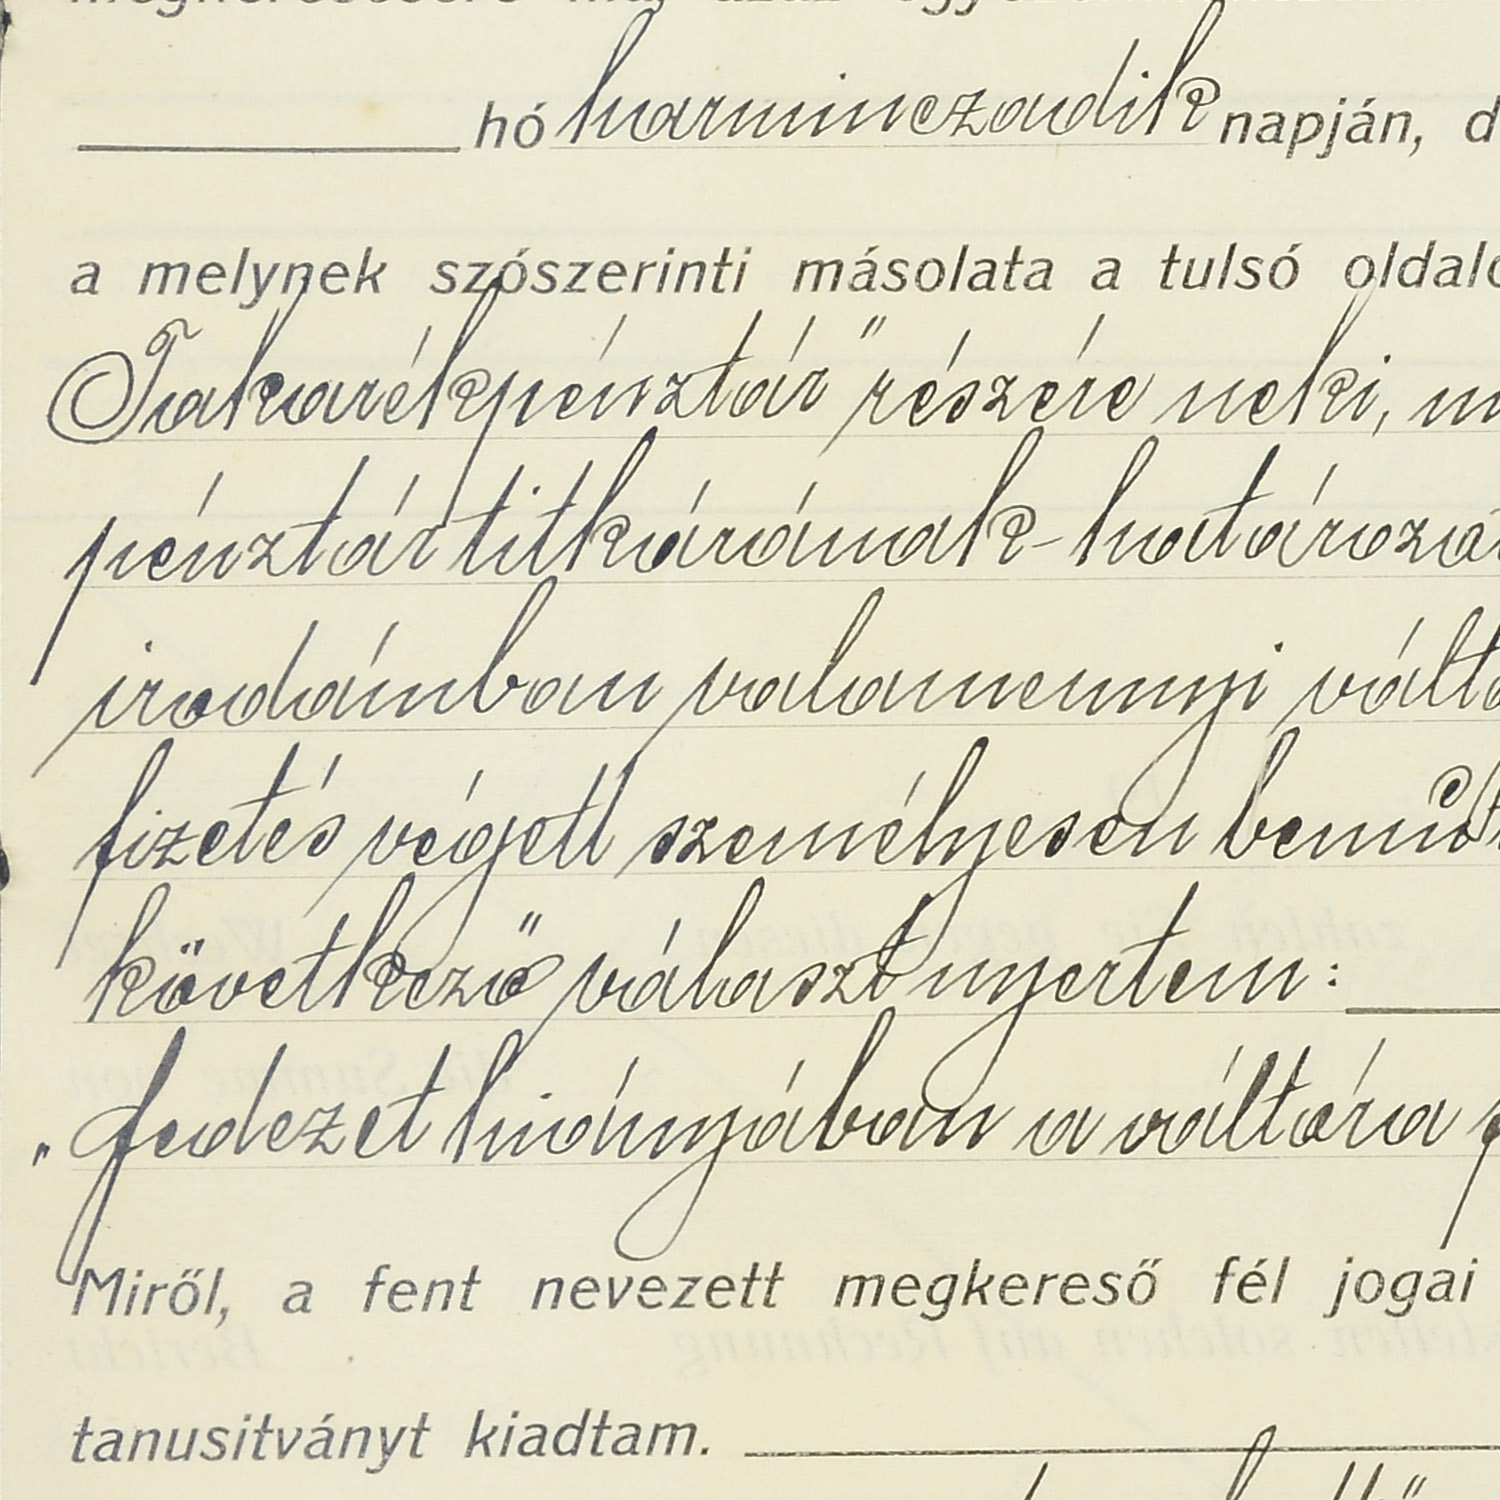 hó harminczadik napján, d
a melynek szószerinti másolata a tulsó oldalo
Takarékpénztár" részére neki, m
pénztár titkárának - határozat
irodámban valamennyi vált
fizetés végett személyesen bemut
következő választ nyertem:
„Fedezet hiányában a váltóra f
Miről, a fent nevezett megkereső fél jogai
tanusitványt kiadtam.